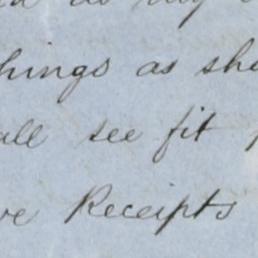 as my
hings as sh
all see fit
ve Receipts